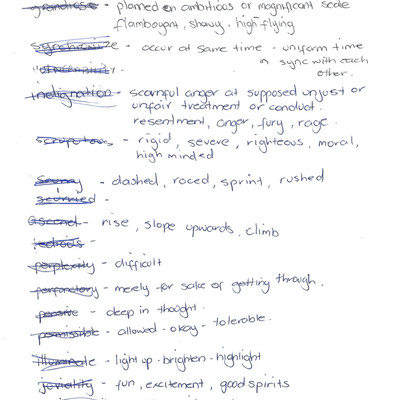 grandiose - planned on ambitious or magnificent scale
flamboyant, showy - high flying
synchronize - occur at same time - uniform time
in sync with each
other.
indignation - scornful anger at supposed unjust or
unfair treatment or conduct.
resentment, anger, fury, rage.
scrupulous - rigid, severe, righteous, moral,
high minded
scurry - dashed, raced, sprint, rushed
scurried -
ascend - rise, slope upwards, climb
tedious -
perplexity - difficult
perfunctory - merely for sake of getting through.
pensive - deep in thought.
permissible - allowed - okay - tolerable.
illuminate - light up - brighten - highlight
joviality - fun, excitement, good spirits